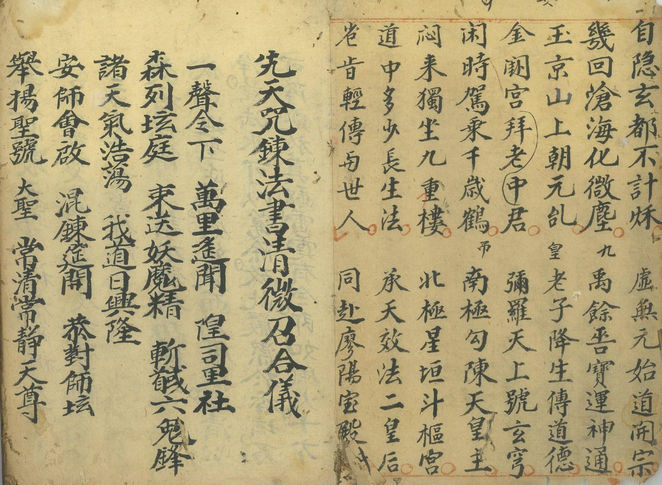 自隐玄都不計秌 虛無元始道開宗
幾回滄海化微塵 九 禹餘吾寶運神通
玉京山上朝元 皇 老子降生傳道德
金闕宮拜老中君 彌羅天上號玄穹
闲時駕乘千歲鶴 南極勾陳天皇主
闷来獨坐九重樓 北極星垣斗樞宮
道中多少長生法 承天效法二皇后
岂肯輕傳与世人 同赴廖陽宝殿
先天咒鍊法書清微召合儀
一聲令下 萬里遙聞 隍司里社
森列坛庭 束送妖魔精 斬馘六鬼鋒
諸天氣浩蕩 我道日興隆
安師會啟 混鍊筵開 恭對師坛
舉揚聖號 大聖 常清常静天尊